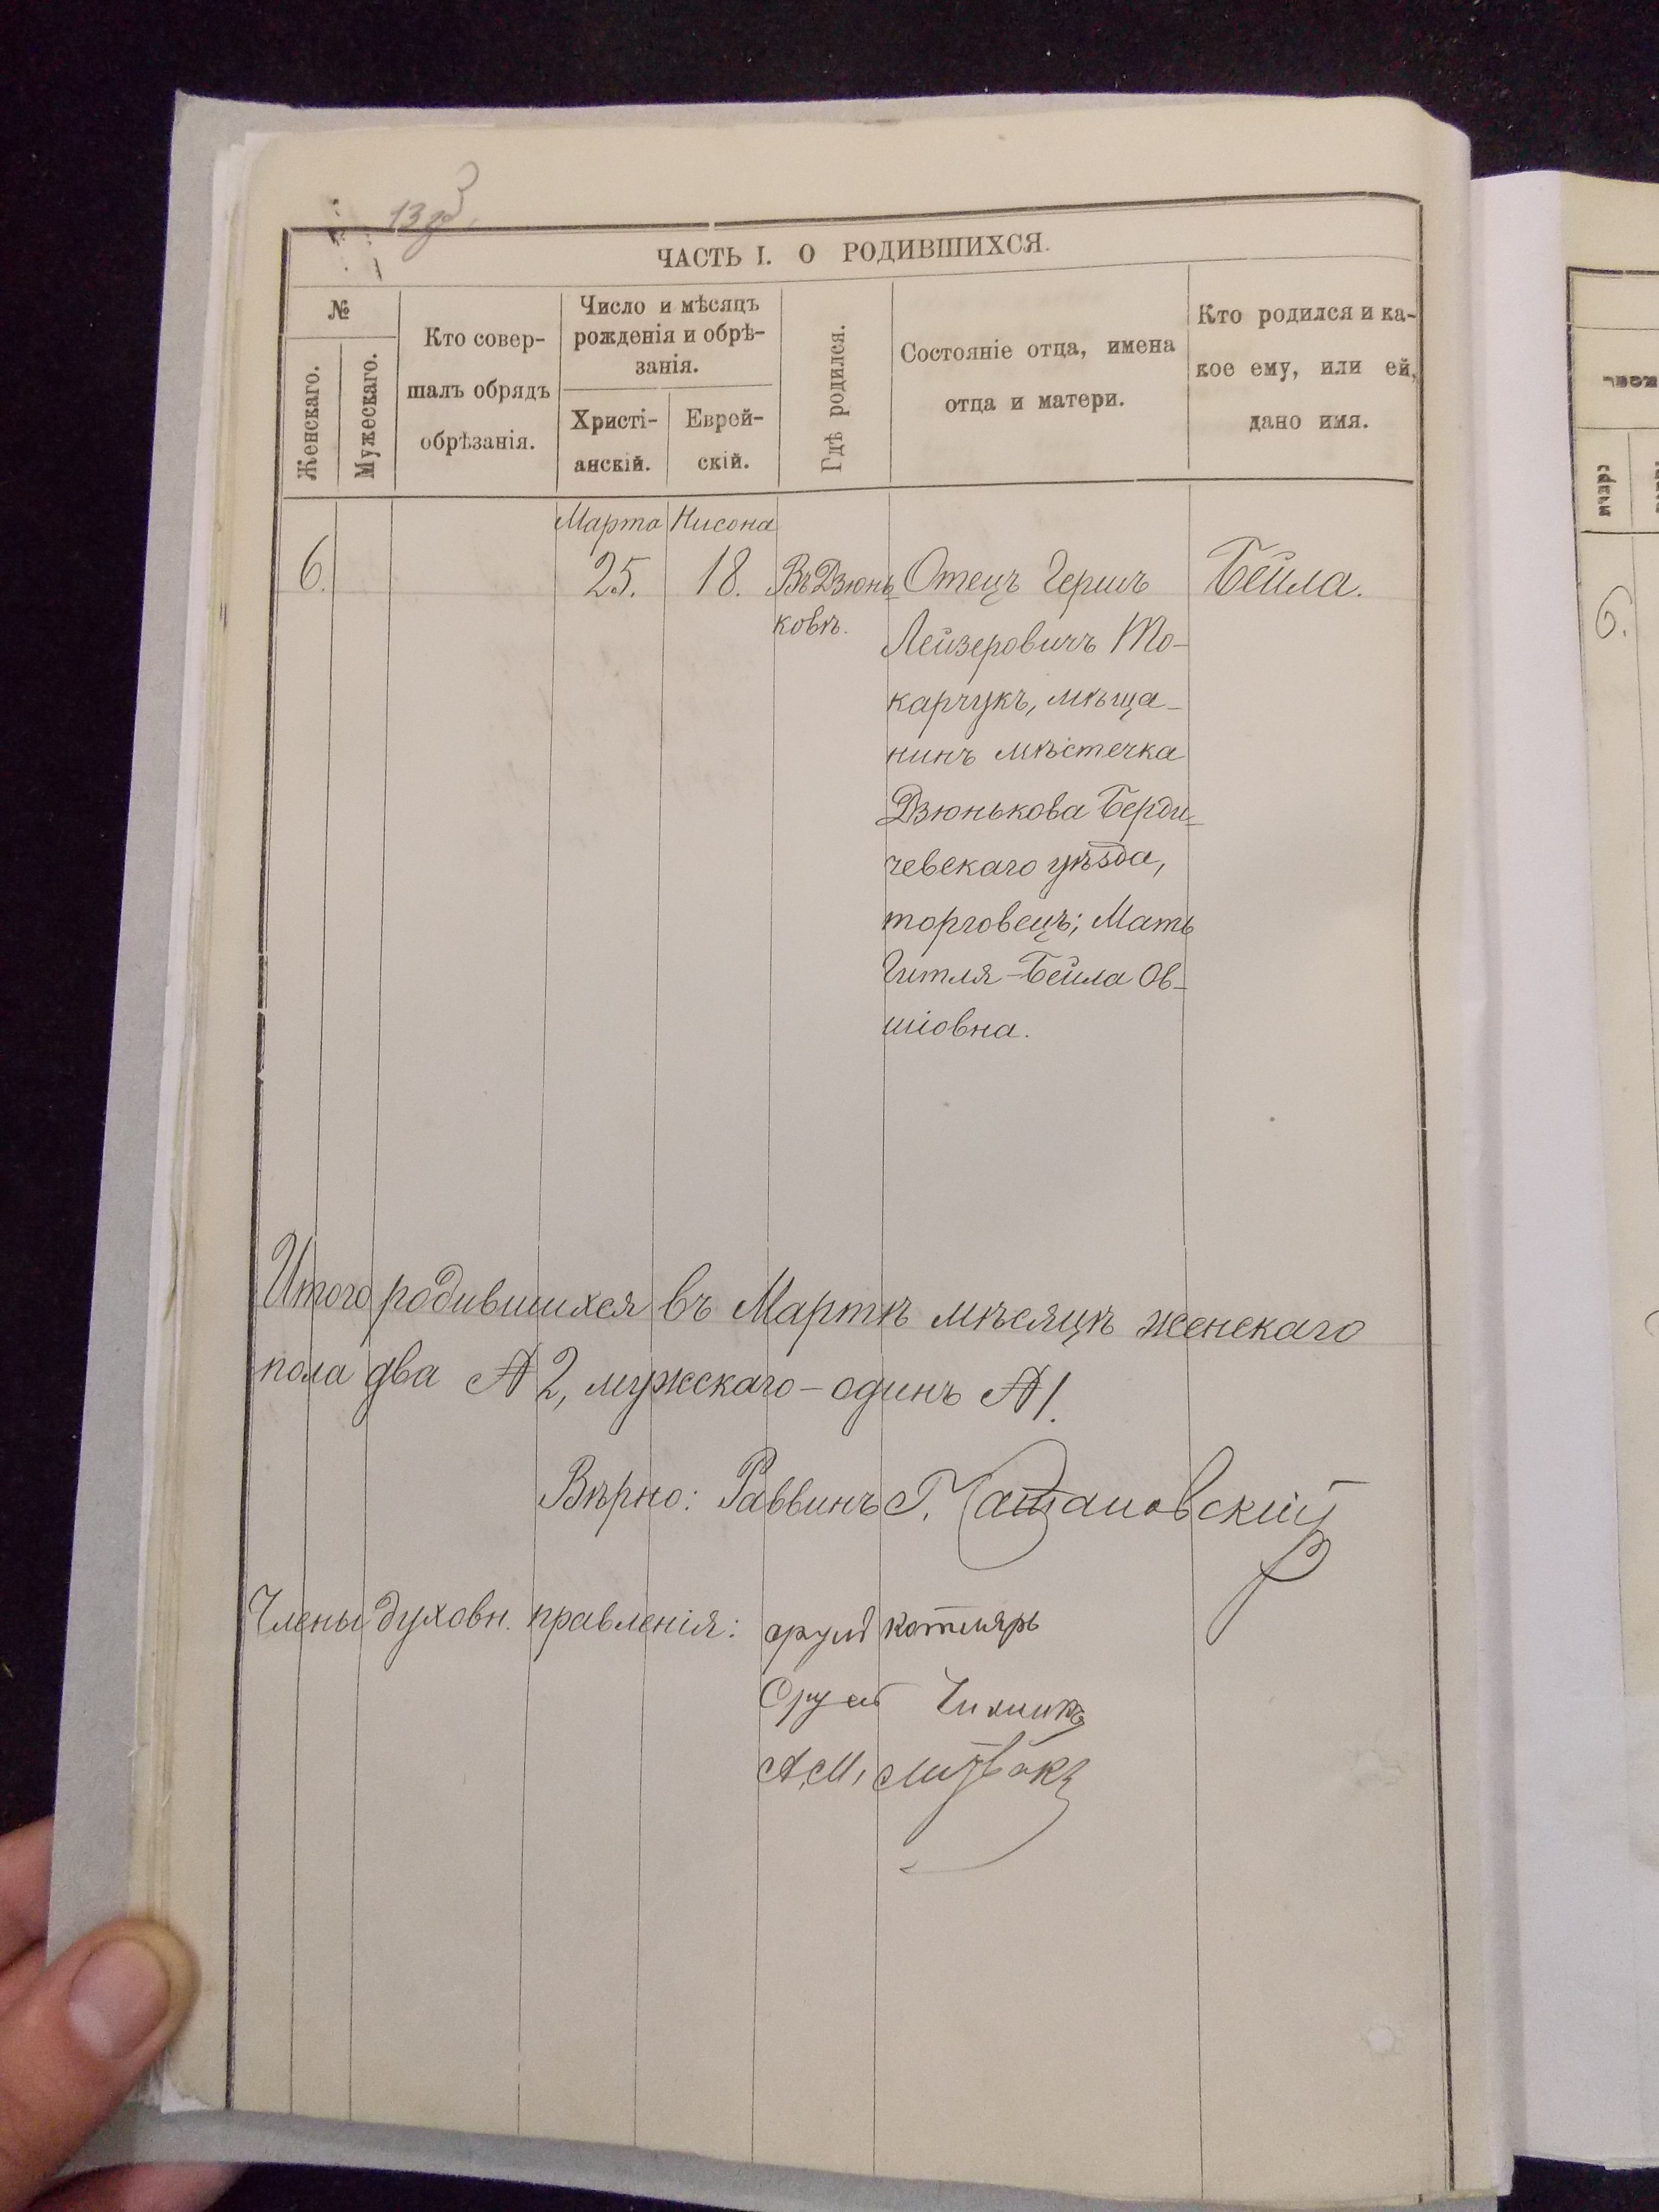 13
ЧАСТЬ I. О РОДИВШИХСЯ.
№
Женскаго.
Мужескаго.
Кто совер-
шалъ обрядъ
обрѣзанія.
Число и мѣсяцъ
рожденія и обрѣ-
занія.
Христі-
анскій.
Еврей-
скій.
Гдѣ родился.
Состояніе отца, имена
отца и матери.
Кто родился и ка-
кое ему, или ей,
дано имя.
Марта Нисона
6. 25. 18. Въ Дзюнь- Отецъ Гершъ Бейла.
ковѣ. Лейзеровичъ То-
карчукъ, мѣща-
нинъ мѣстечка
Дзюнькова Берди-
чевскаго уѣзда,
торговецъ; Мать
Гитля-Бейла Ов-
шіовна.
Итого родившихся въ Мартѣ мѣсяцѣ женскаго
пола два № 2, мужскаго - одинъ № 1.
Вѣрно: Раввинъ
Члены духовн. правленія: котляръ
А, М,
6.